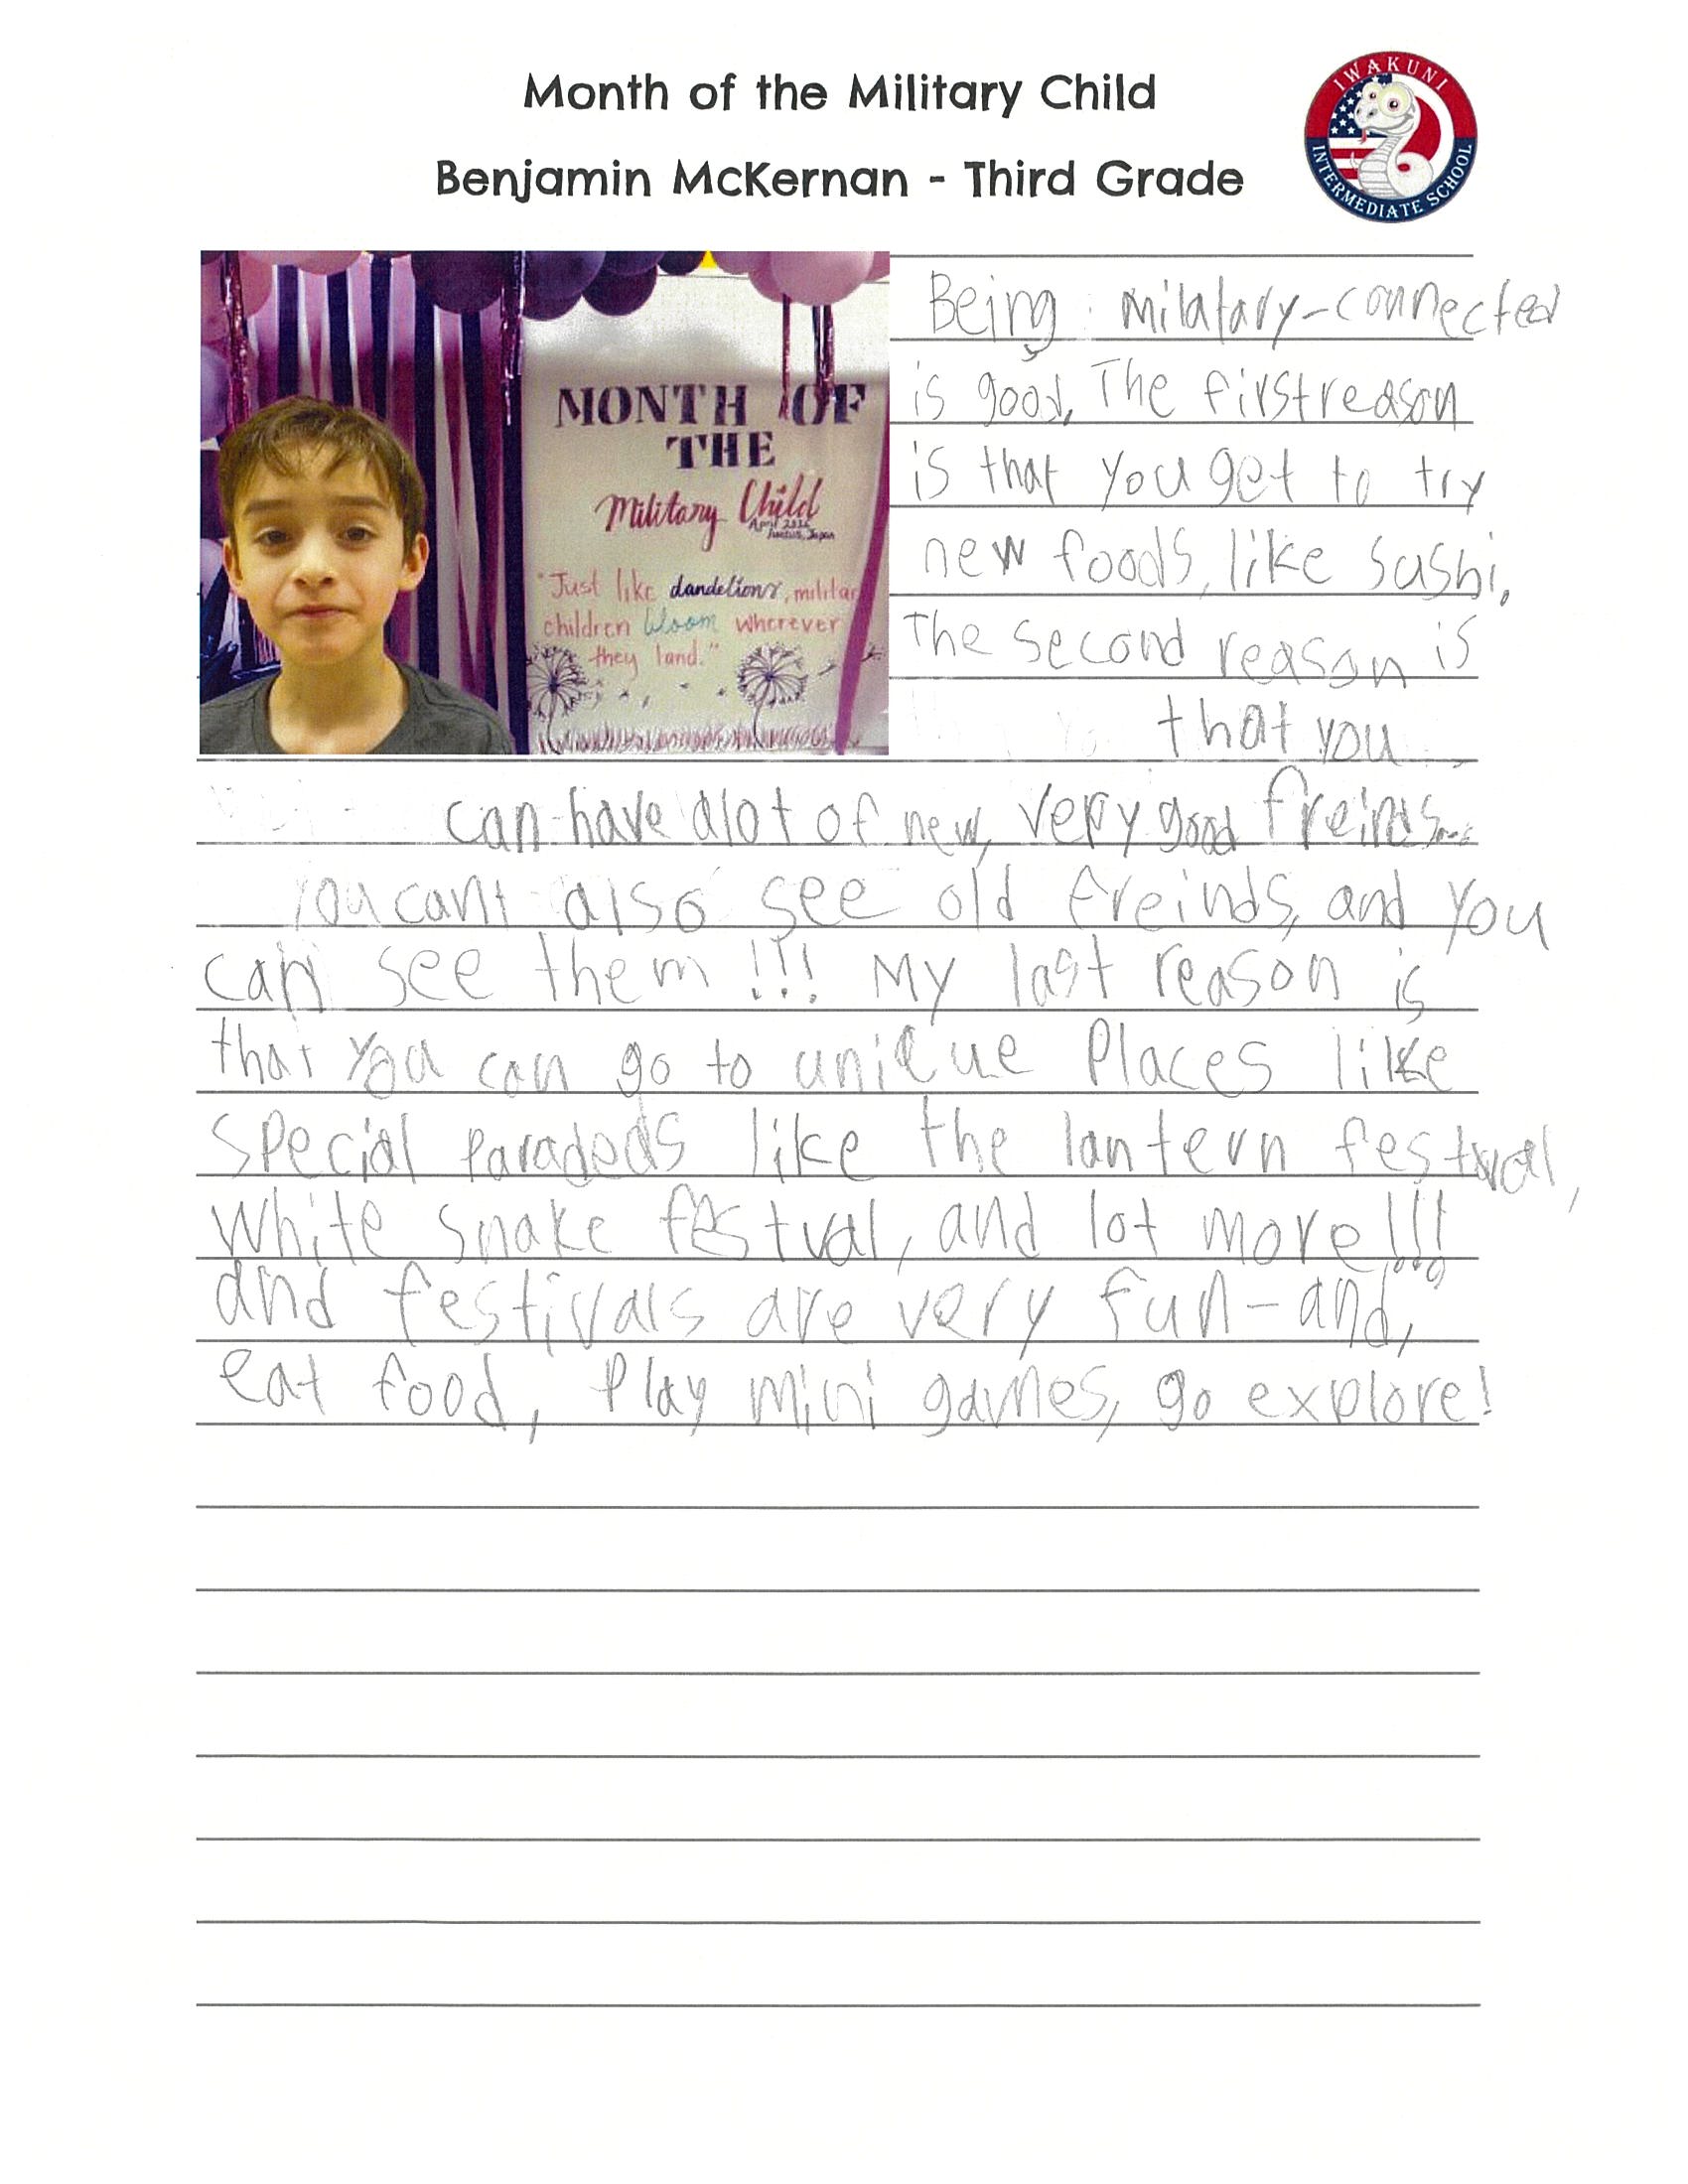 Month of the Military Child
Benjamin McKernan - Third Grade
IWAKUNI
INTERMEDIATE SCHOOL
MONTH OF
THE
Military Child
April
Japan
"Just like dandelions, militar
children bloom wherever
they land."
Being milatary-connected
is good, The first reason
is that you get to try
new foods, like sushi,
The second reason is
that you
can have alot of new, very good freinds
You cant also see old freinds, and you
can see them!!! My last reason is
that you can go to unieue Places like
Special Paradeds like the lantern festival,
White snake festval, and lot more!!!
and festivals are very fun-and,
eat food, Play mini games, go explore!